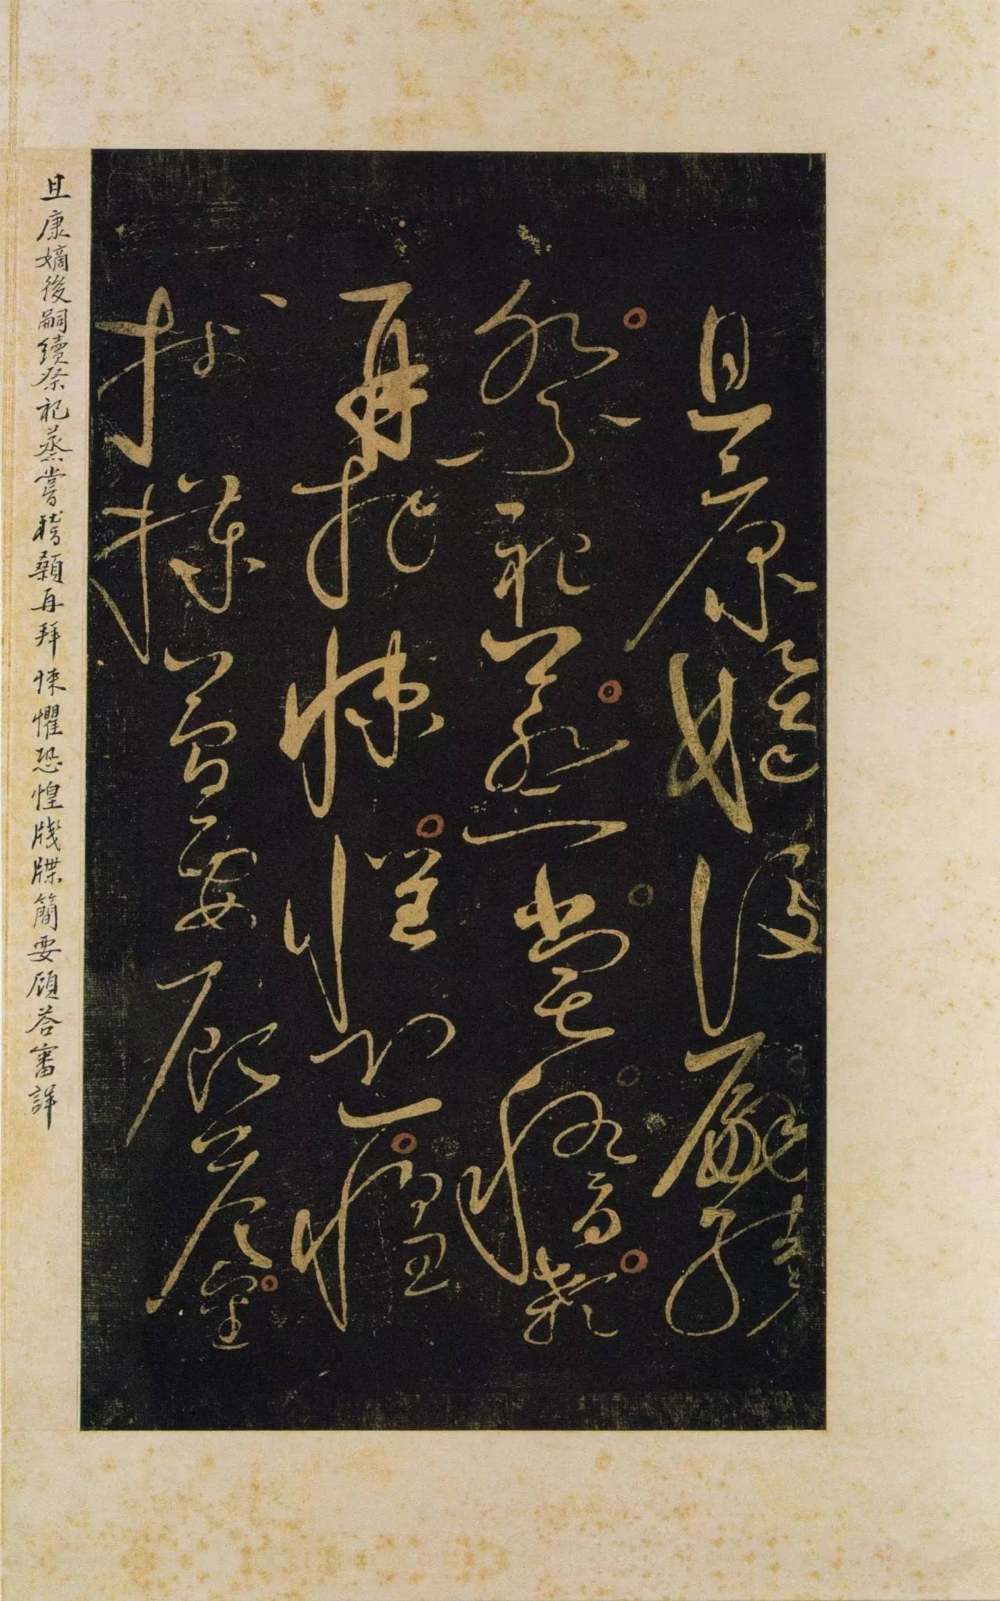 且康嫡後嗣續
祭祀蒸嘗稽顙
再拜悚懼恐惶
牋牒簡要顧答審
且康嫡後嗣續祭祀蒸嘗稽顙再拜悚懼恐惶牋牒簡要顧荅審詳